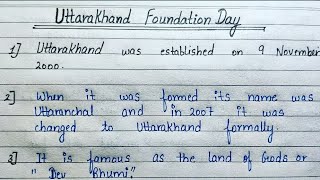 Uttarakhand Foundation Day
1] Uttarakhand was established on 9 November
2000.
2] When it was formed its name was
Uttaranchal and in 2007 it was
changed to Uttarakhand formally.
3] It is famous as the land of Gods or
"Dev Bhumi".